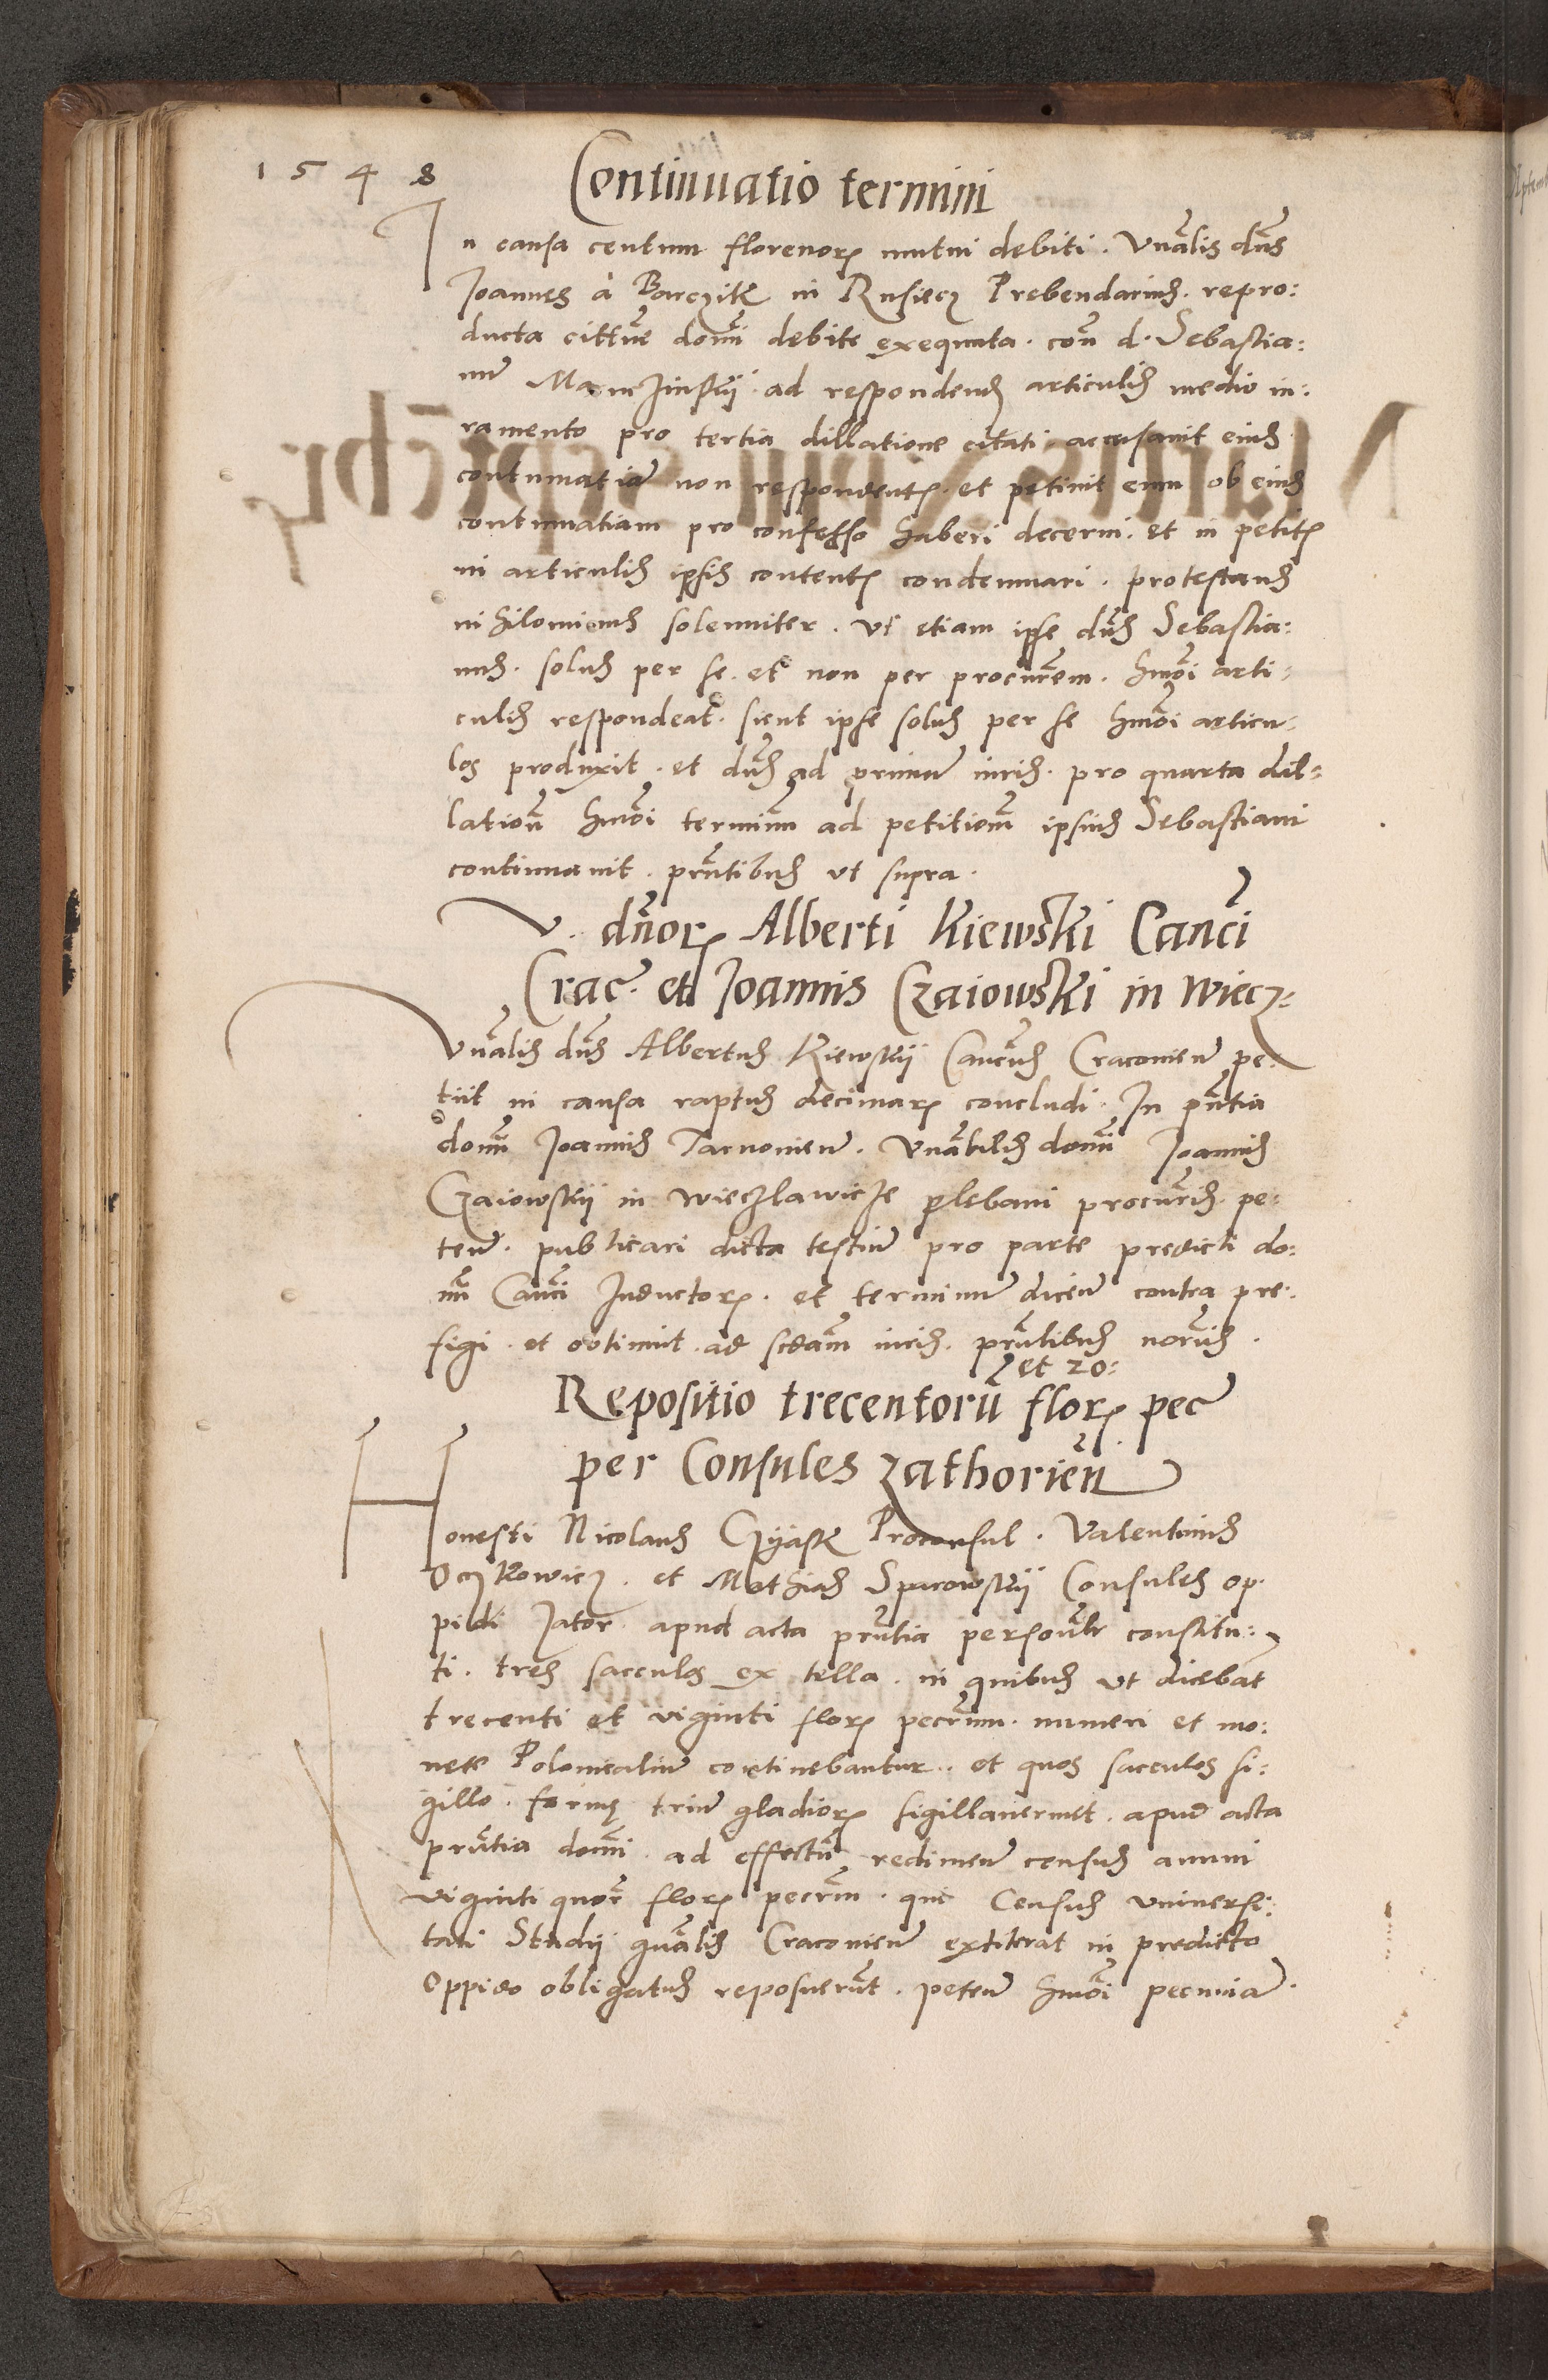 1548
Continuatio termini
In causa centum florenorꝫ mutui debiti. Vnãlis dñs
Joannes à Barczitk in Rusiecz Prebendarius. repro:
ducta cittõne domi debite exequuta. con̄ d. Sebastia:
nū ad respondendꝫ articulis medio iu:
ramento pro tertia dillatione citati accusauit eius
contumatiā non respondentꝫ. et petiuit eum ob eius
contumatiam pro confesso haberi decerni. et in petitꝫ
in articulis ipsis contentꝫ condemnari. protestans
nihilominus solenniter. Vt etiam ipse dñs Sebastia:
nus. solus per se. et non per procurem. hmõi arti:
culis respondeat. sicut ipse solus per se hmõi articu:
los produxit. et dñs ad primū iuris. pro quarta dil:
lation̄ hmõi terminū ad petition̄ ipsius Sebastiani
continuauit. prñtibus vt supra.
V. dñorꝫ Alberti Kiewski Canci
Crac̄. et Joannis Czaiowski in Wiecz:
Vnãlis dñs Albertus Kiewskij Cancus Cracouien̄ pe:
tiit in causa raptus decimarꝫ concludi. In pñtia
domi Joannis Tarnouien̄. Vnãbilis domi Joannis
Czaiowskij in Wieczlawicze plebani procuris. pe:
ten̄. publicari dicta testiū pro parte predicti do:
mi Canci Inductorꝫ. et terminū dicen̄ contra pre:
figi. et obtinuit. ad scdam iuris. prñtibus norūs.
et 20:
Repositio trecentorū florꝫ pec̄
per Consules Zathorien̄
Honesti Nicolaus Czijastk Proconsul. Valentinus
Oczkowicz. et Mathias Sparowskij Consules op:
pidi Zator. apud acta prñtia personãlr constitu:
ti. tres sacculos ex tella. in quibus vt dicebāt
trecenti et viginti florꝫ pecrum. numeri et mo:
nete Polonicaliū continebantur. et quos sacculos si:
gillo. forme triū gladiorꝫ sigillauerunt. apud acta
prñtia domi. ad effectū redimen̄ census annui
viginti quor̄ florꝫ pecrm. qui Census vniuersi:
tati Studij gnãlis Cracouien̄ extiterat in predicto
Oppido obligatus reposuerūt. peten̄ hmõi pecuniā.